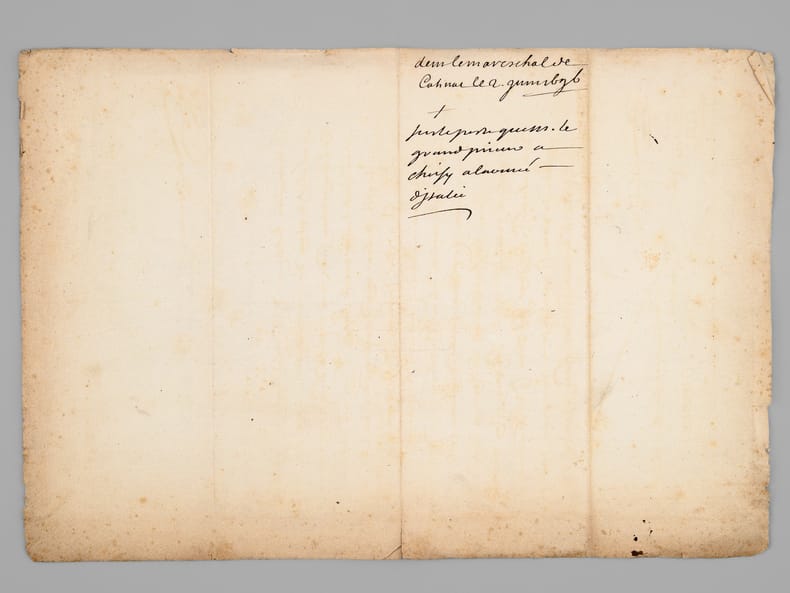 de m le mareschal de
Catinat le 2. juin 1696
+
sur le poste que m. le
grand prieur a
choisy a larmée
ditalie